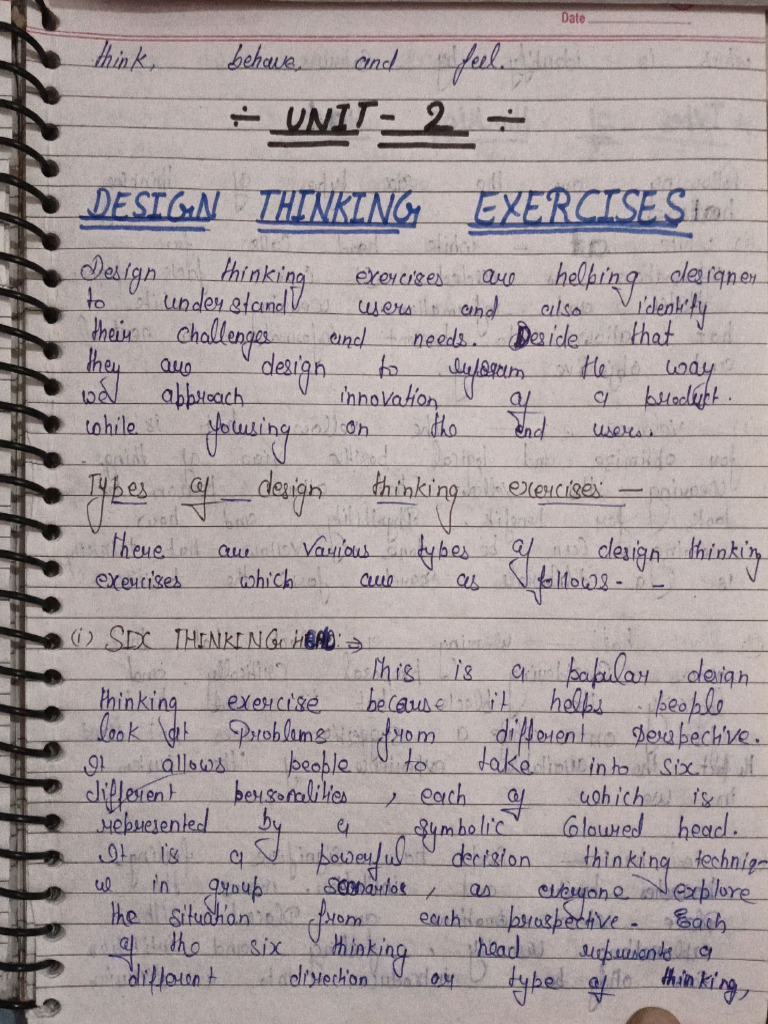 Date
think, behave, and feel.
÷ UNIT - 2 ÷
DESIGN THINKING EXERCISES
Design thinking exercises are helping designer
to understand users and also identify
their challenges and needs. Deside that
they are design to the way
we approach innovation of a product.
while focusing on the end users.
Types of design thinking exercises —
There are various types of design thinking
exercises which are as follows - -
(i) SIX THINKING HEAD: ⇒
This is a popular design
thinking exercise because it helps people
look at Problems from different perspective.
It allows people to take into six
different personalities, each of which is
represented by a symbolic Coloured head.
It is a powerful decision thinking techniq-
ue in group scenarios, as everyone explore
the situation from each prospective. Each
of the six thinking head represents a
different direction or type of thinking,